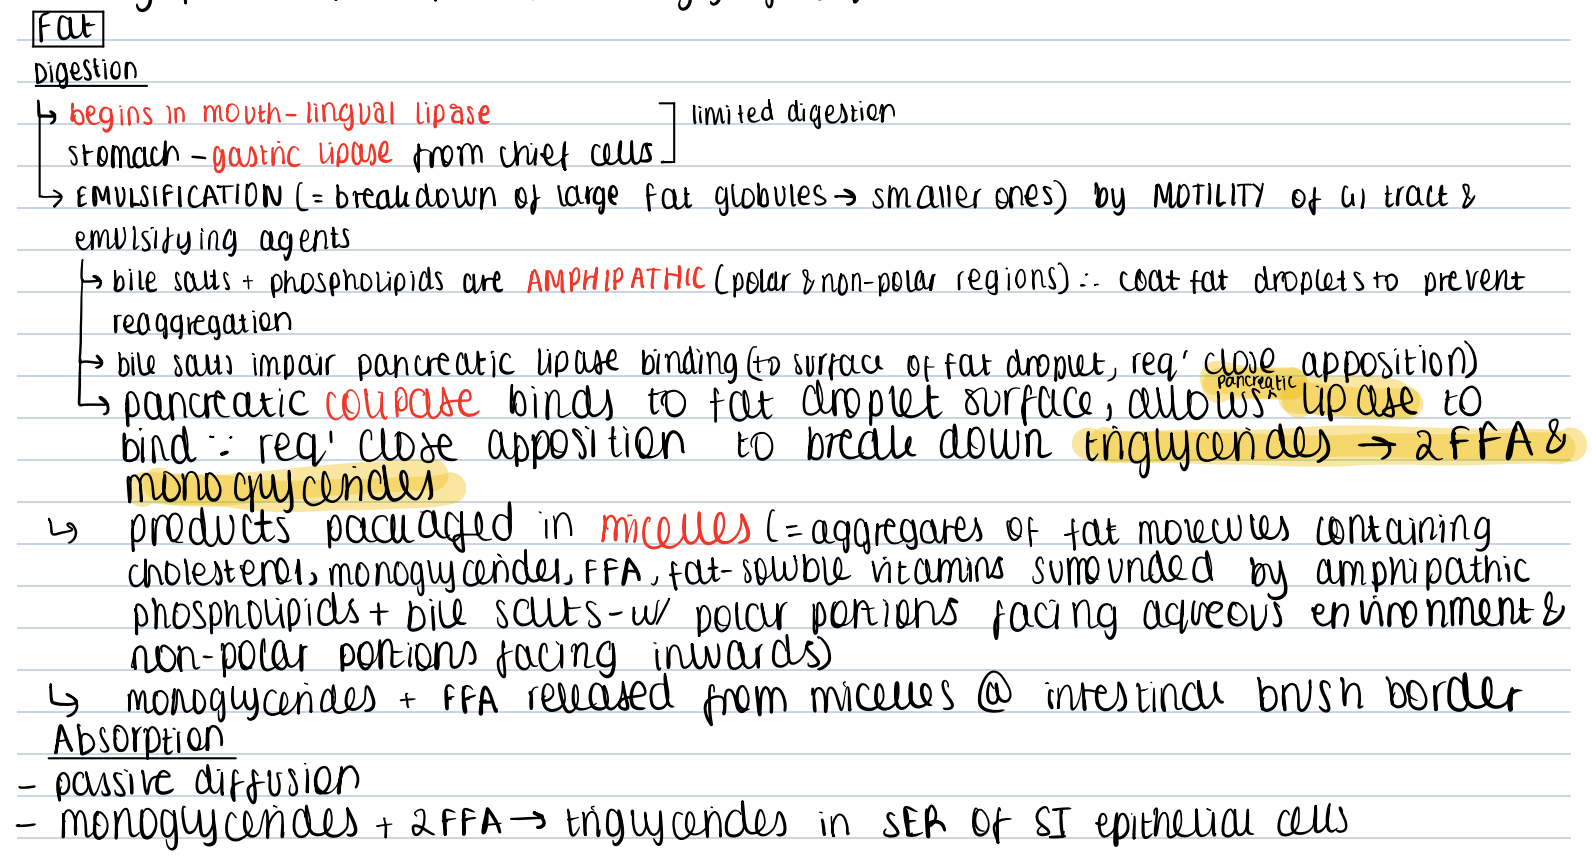 Fat
Digestion
↳ begins in mouth - lingual lipase
limited digestion
stomach - gastric lipase from chief cells
↳ EMULSIFICATION (= breakdown of large fat globules → smaller ones) by MOTILITY of GI tract &
emulsifying agents
↳ bile salts + phospholipids are AMPHIPATHIC (polar & non-polar regions) ∴ coat fat droplets to prevent
reaggregation
↳ bile salts impair pancreatic lipase binding (to surface of fat droplet, req' close apposition)
↳ pancreatic colipase binds to fat droplet surface, allows pancreatic lipase to
bind ∵ req' close apposition to break down triglycerides → 2 FFA &
monoglycerides
↳ products packaged in micelles (= aggregares of fat molecules containing
cholesterol, monoglycerides, FFA, fat-soluble vitamins surrounded by amphipathic
phospholipids + bile salts - w/ polar portions facing aqueous environment &
non-polar portions facing inwards)
↳ monoglycerides + FFA released from micelles @ intestinal brush border
Absorption
- passive diffusion
- monoglycerides + 2 FFA → triglycerides in SER of SI epithelial cells